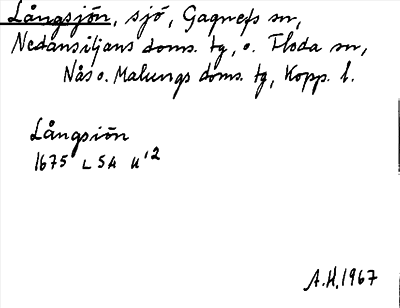 Långsjön, sjö, Gagnefs sn,
Nedansiljans doms. tg, o. Floda sn,
Nås o. Malungs doms. tg, Kopp. l.
Långsiön
1675 LSA U'2
A.H. 1967